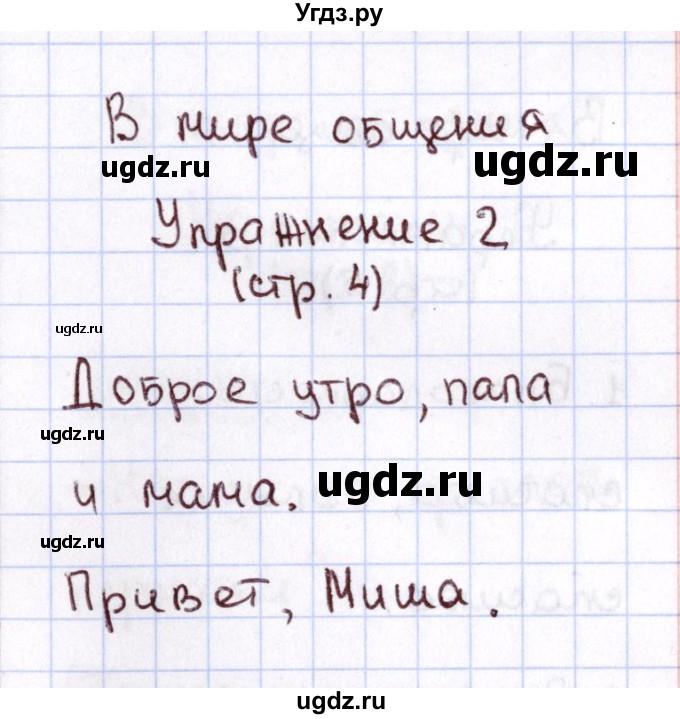 Угдз.ру
В мире общения
ugdz.ru ugdz.ru
Упражнение 2
(стр. 4)
ugdz.ru
Доброе утро, папа
ugdz.ru
и мама. ugdz.ru
ugdz.ru
Привет, Миша.
ugdz.ru